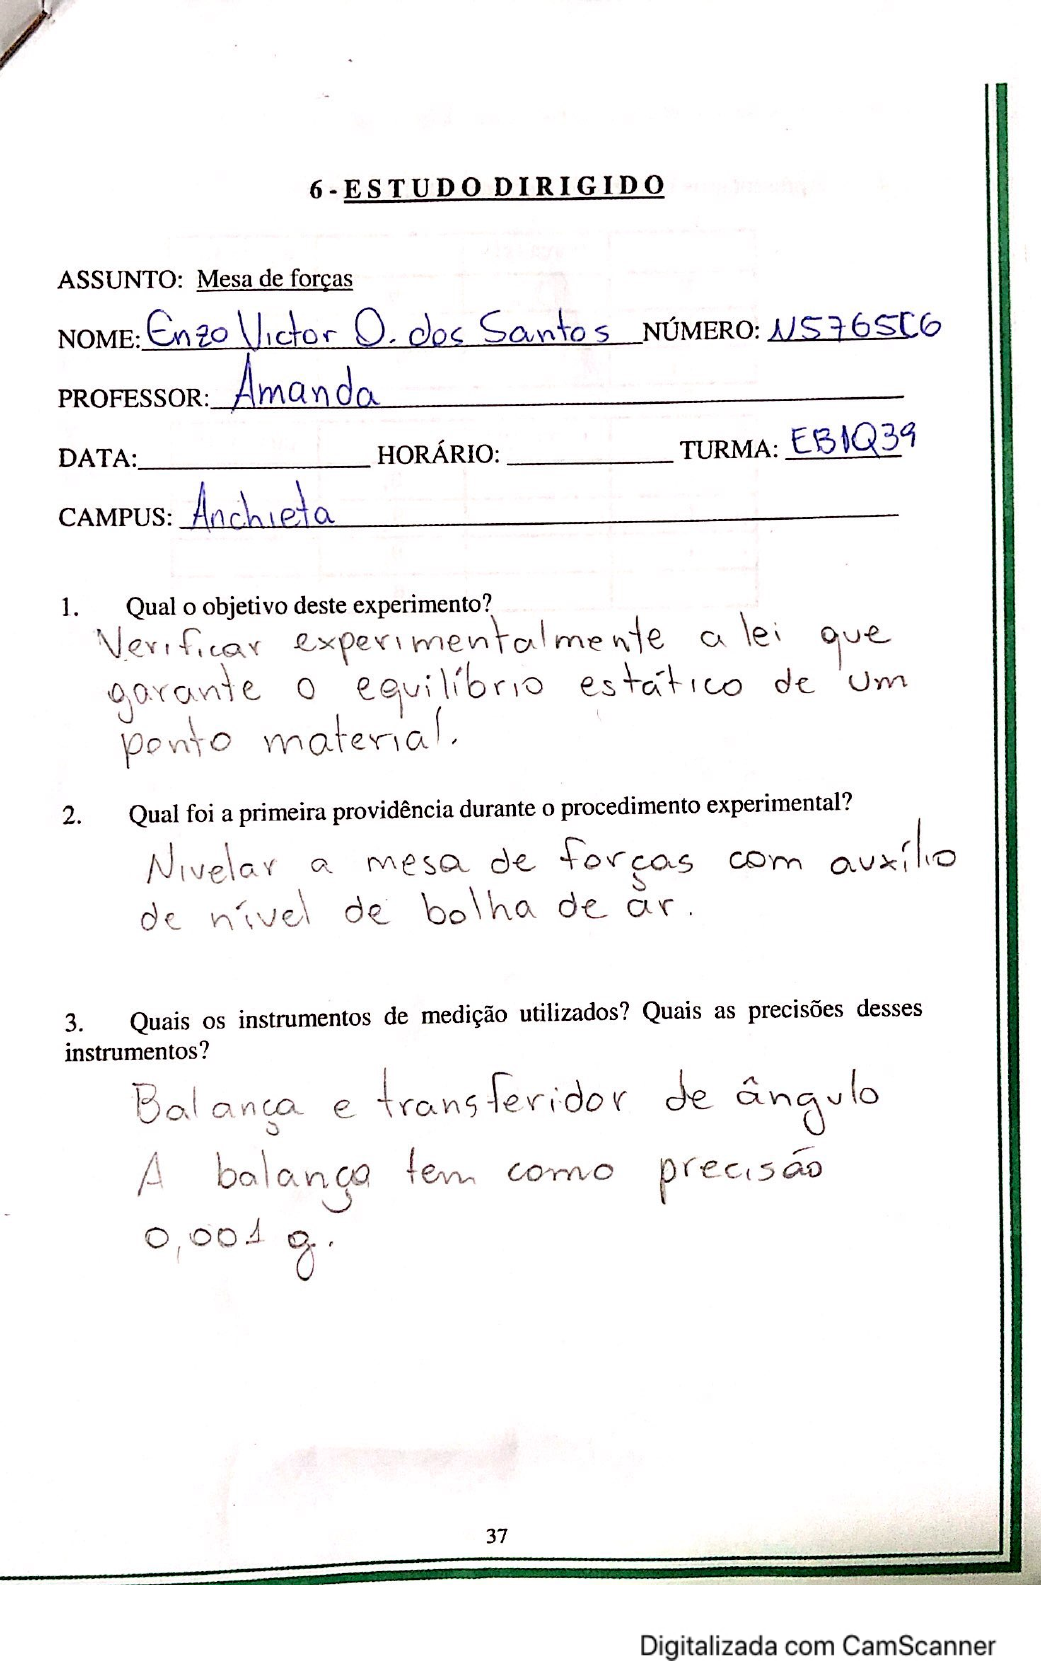 6 - ESTUDO DIRIGIDO
ASSUNTO: Mesa de forças
NOME: Enzo Victor O. dos Santos NÚMERO: N5765C6
PROFESSOR: Amanda
DATA: HORÁRIO: TURMA: EB1Q39
CAMPUS: Anchieta
1. Qual o objetivo deste experimento?
Verificar experimentalmente a lei que
garante o equilíbrio estático de um
ponto material.
2. Qual foi a primeira providência durante o procedimento experimental?
Nivelar a mesa de forças com auxílio
de nível de bolha de ar.
3. Quais os instrumentos de medição utilizados? Quais as precisões desses
instrumentos?
Balança e transferidor de ângulo
A balança tem como precisão
0,001 g.
37
Digitalizada com CamScanner